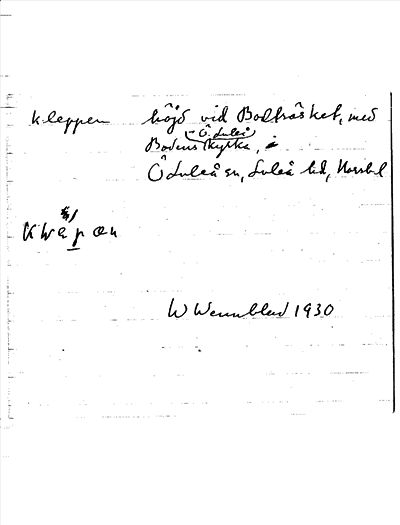 Kleppen höjd vid Bodträsket, med
Ö. Luleå
Bodens kyrka, i
Ö Luleå sn, Luleå td, Norrb l
W Wennblad 1930